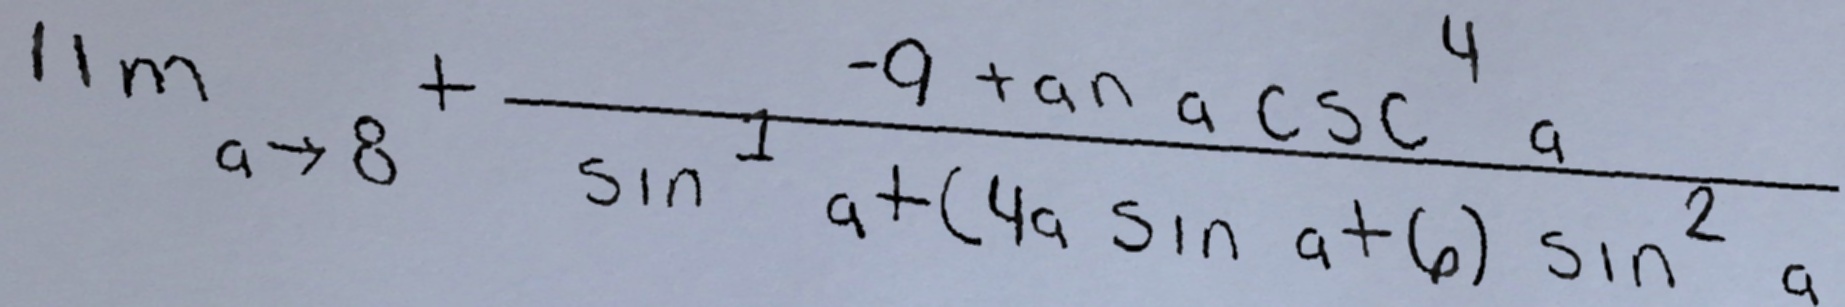 lim a→8⁺ \frac{-9 tan a csc^4 a}{sin^1 a+(4a sin a+6) sin^2 a}